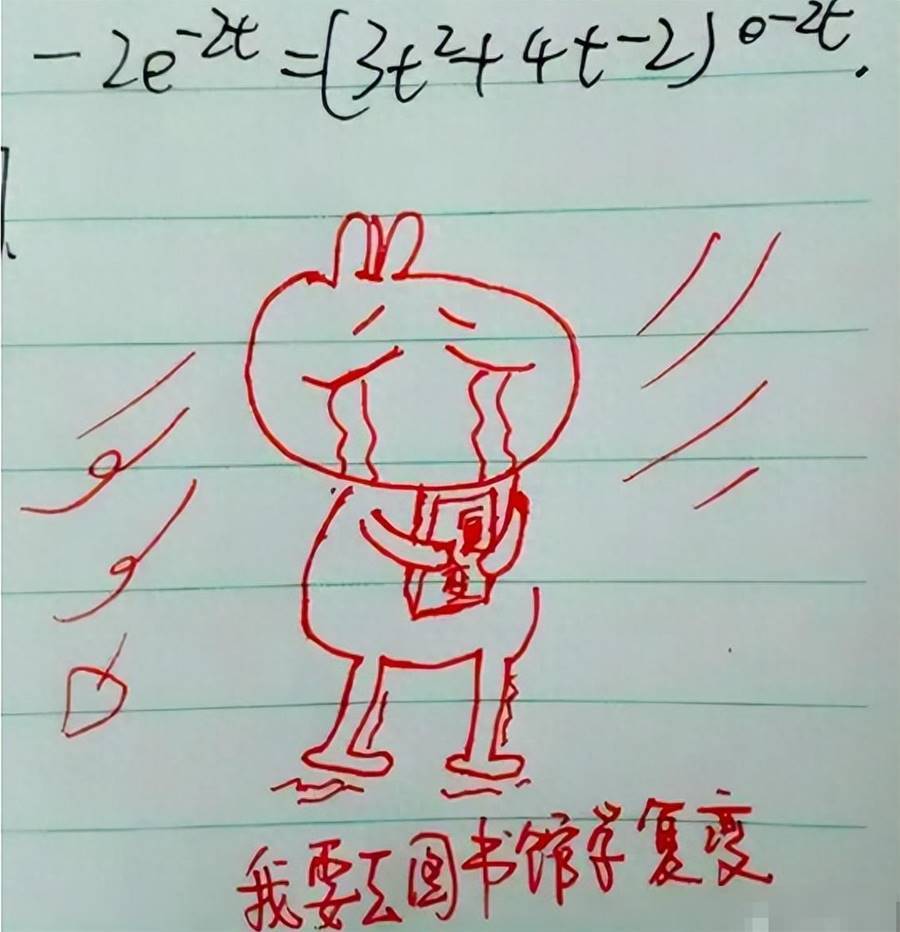 -2e^{-2t} = (3t²+4t-2) e^{-2t}.
复
变
我要去图书馆学复变